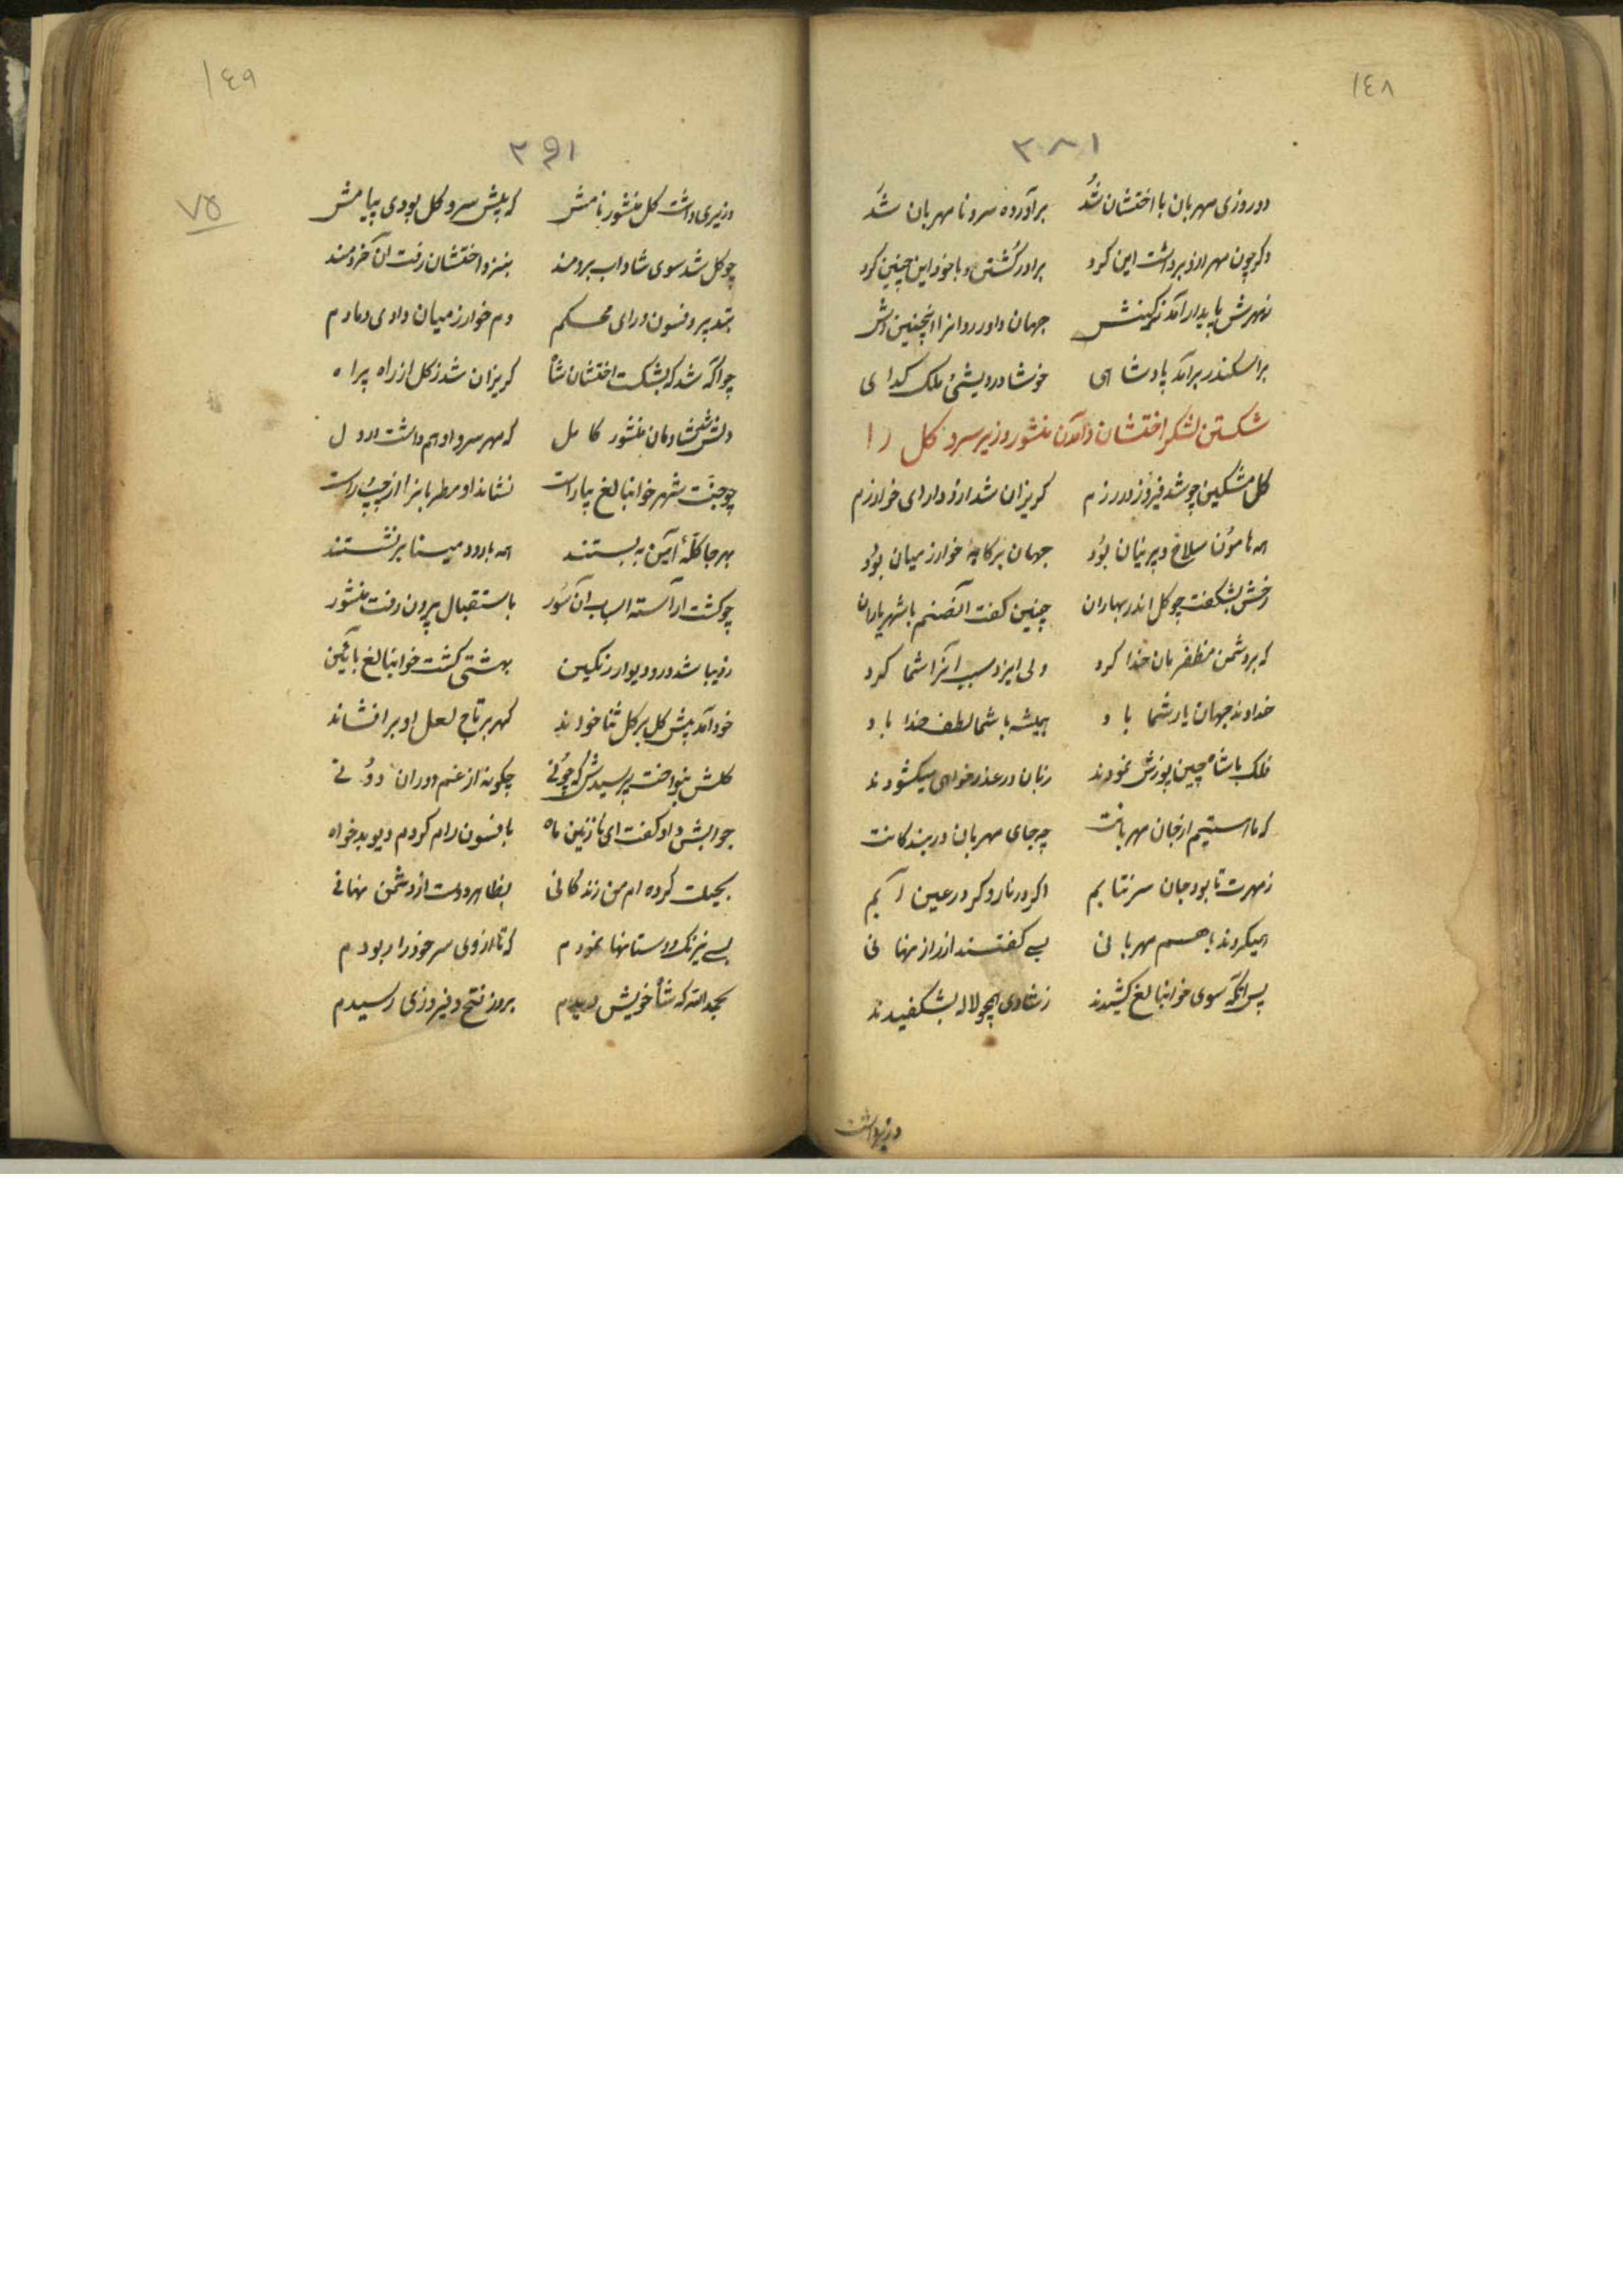 ١٤٨
٣٨١
دو روزی مهربان با اختشان شد برآورده سر و نامهربان شد
دکر چون مهر ازو برداشت این کرد برادر کشتن و با خود این چنین کرد
ز مهرش پایدار آمد ز کینش جهان داور روانرا اینچنین
بر اسکندر برآمد پادشاهی خوشا درویشی و ملک کدای
شکستن لشکر اختشان و آمدن منشور وزیر سرو کل را
کل مشکین چو شد فیروز در رزم کریزان شد ازو دارای خوارزم
همه هامون سلاح و پرنیان بود جهان بر کام خوارزمیان بود
رخش بشکفت چو کل اندر بهاران چنین کفت آنصنم با شهریاران
که بر دشمن مظفرمان خدا کرد ولی ایزد سبب آنرا شما کرد
خداوند جهان یار شما باد همیشه با شما لطف خدا باد
ملک با شاه چین پوزش نمودند زبان در عذرخواهی میکشودند
که ما استیم از جان مهربانت چه جای مهربان در بندکانت
ز مهرت تا بود جان سر نتابیم اکر در نار و کر در عین آبیم
همیکردند با هم مهربانی بسی کفتند از راز نهانی
پس آنکه سوی خوانبالغ کشیدند ز شادی همچو لاله بشکفیدند
وزیر داشت
١٤٩
٣٩١
٧٥
وزیری داشت کل منشور نامش که پیش سرو کل بودی پیامش
چو کل شد سوی شاداب برومند بنزد اختشان رفت آن خردمند
بتدبیر و فسون و رای محکم دم خوارزمیان دادی دمادم
چو آکه شد که بشکست اختشان شاه کریزان شد ز کل از راه بیراه
دلش شادمان منشور کامل که مهر سرو او هم داشت در دل
چو جنت شهر خوانبالغ بیاراست نشاند او مطربانرا از چپ و راست
بهر جا کله آیین به بستند همه با رود و مینا بر نشستند
چو کشت آراسته اسباب آن سور باستقبال بیرون رفت منشور
ز دیبا شد در و دیوار رنکین بهشتی کشت خوانبالغ بآیین
خود آمد پیش کل بر کل ثنا خواند کهر بر تاج لعل او برافشاند
کلش بنواخت پرسیدش که چونی چکونه از غم دوران دونی
جوابش داد و کفت ای نازنین ماه بافسون رام کردم دیو بدخواه
بحیلت کرده ام من زندکانی بظاهر دوست از دشمن نهانی
بسی نیرنک و دستانها نمودم که تا از وی سر خود را ربودم
بحمدالله که شاه خویش دیدم بروز فتح و فیروزی رسیدم